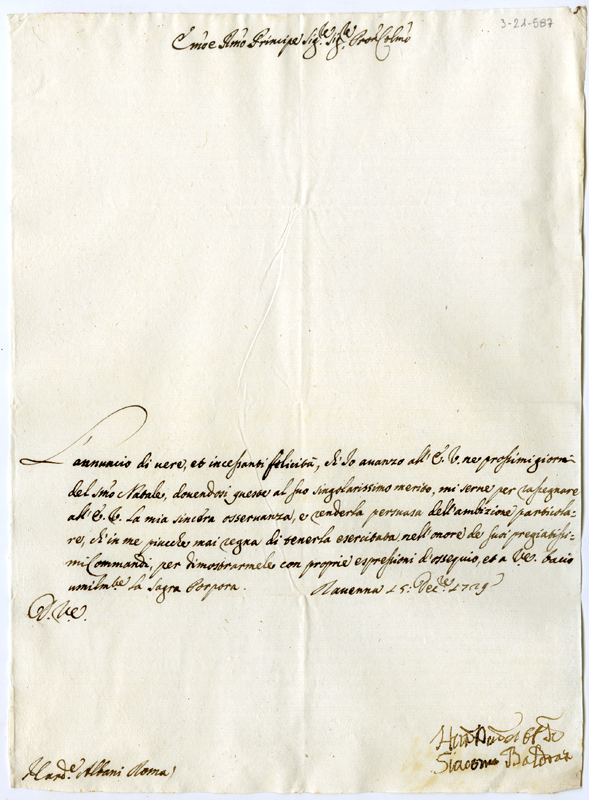 3-21-587
Emo e Rmo Principe Sig.re Sig.re Pron Colmo
L'annuncio di vere, et incessanti felicità, ch'Io avanzo all'E. V. ne prossimi giorni
del Smo Natale, dovendosi queste al suo singolarissimo merito, mi serve per rassegnare
all'E. V. la mia sincera osservanza, e renderla persuasa dell'ambizione particola-
re, ch'in me piucche mai regna di tenerla esercitata nell'onore de suoi pregiatissi-
mi Commandi, per dimostrarmele con proprie espressioni d'ossequio, et a V.E. bacio
umilm.te la Sagra Porpora. Ravenna 15: Dec.re 1729
D. V.E.
Giacomo
S. Card.e Albani Roma